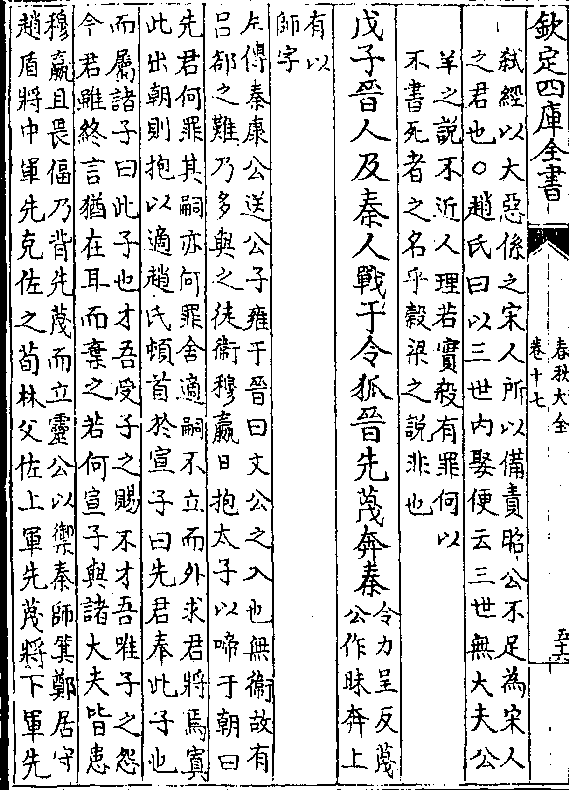 欽定四庫全書
春秋大全
卷十七
五十六
弑經以大惡係之宋人所以備責昭公不足為宋人
之君也○趙氏曰以三世内娶便云三世無大夫公
羊之説不近人理若實殺有罪何以
不書死者之名乎榖梁之説非也
戊子晉人及秦人戰于令狐晉先蔑奔秦
令力呈反蔑
公作昧奔上
有以
師字
左傳秦康公送公子雍于晉曰文公之入也無衛故有
吕郤之難乃多與之徒衛穆嬴日抱太子以啼于朝曰
先君何罪其嗣亦何罪舍適嗣不立而外求君將焉寘
此出朝則抱以適趙氏頓首於宣子曰先君奉此子也
而屬諸子曰此子也才吾受子之賜不才吾唯子之怨
今君雖終言猶在耳而棄之若何宣子與諸大夫皆患
穆嬴且畏偪乃背先蔑而立靈公以禦秦師箕鄭居守
趙盾將中軍先克佐之荀林父佐上軍先蔑將下軍先